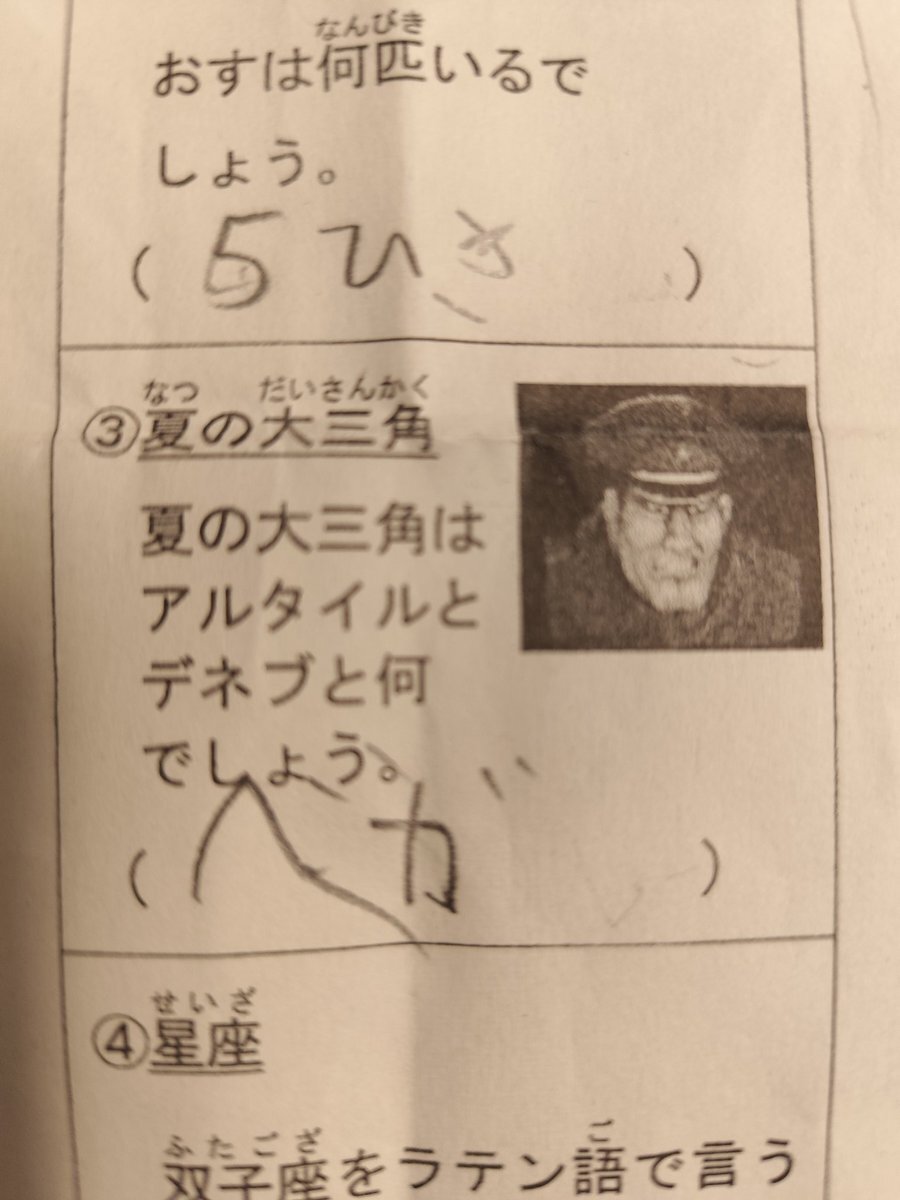 なんびき
おすは何匹いるで
しょう。
( 5ひき )
なつ だいさんかく
③夏の大三角
夏の大三角は
アルタイルと
デネブと何
でしょう。
( ベガ )
せいざ
④星座
ふたござ ご
双子座をラテン語で言う